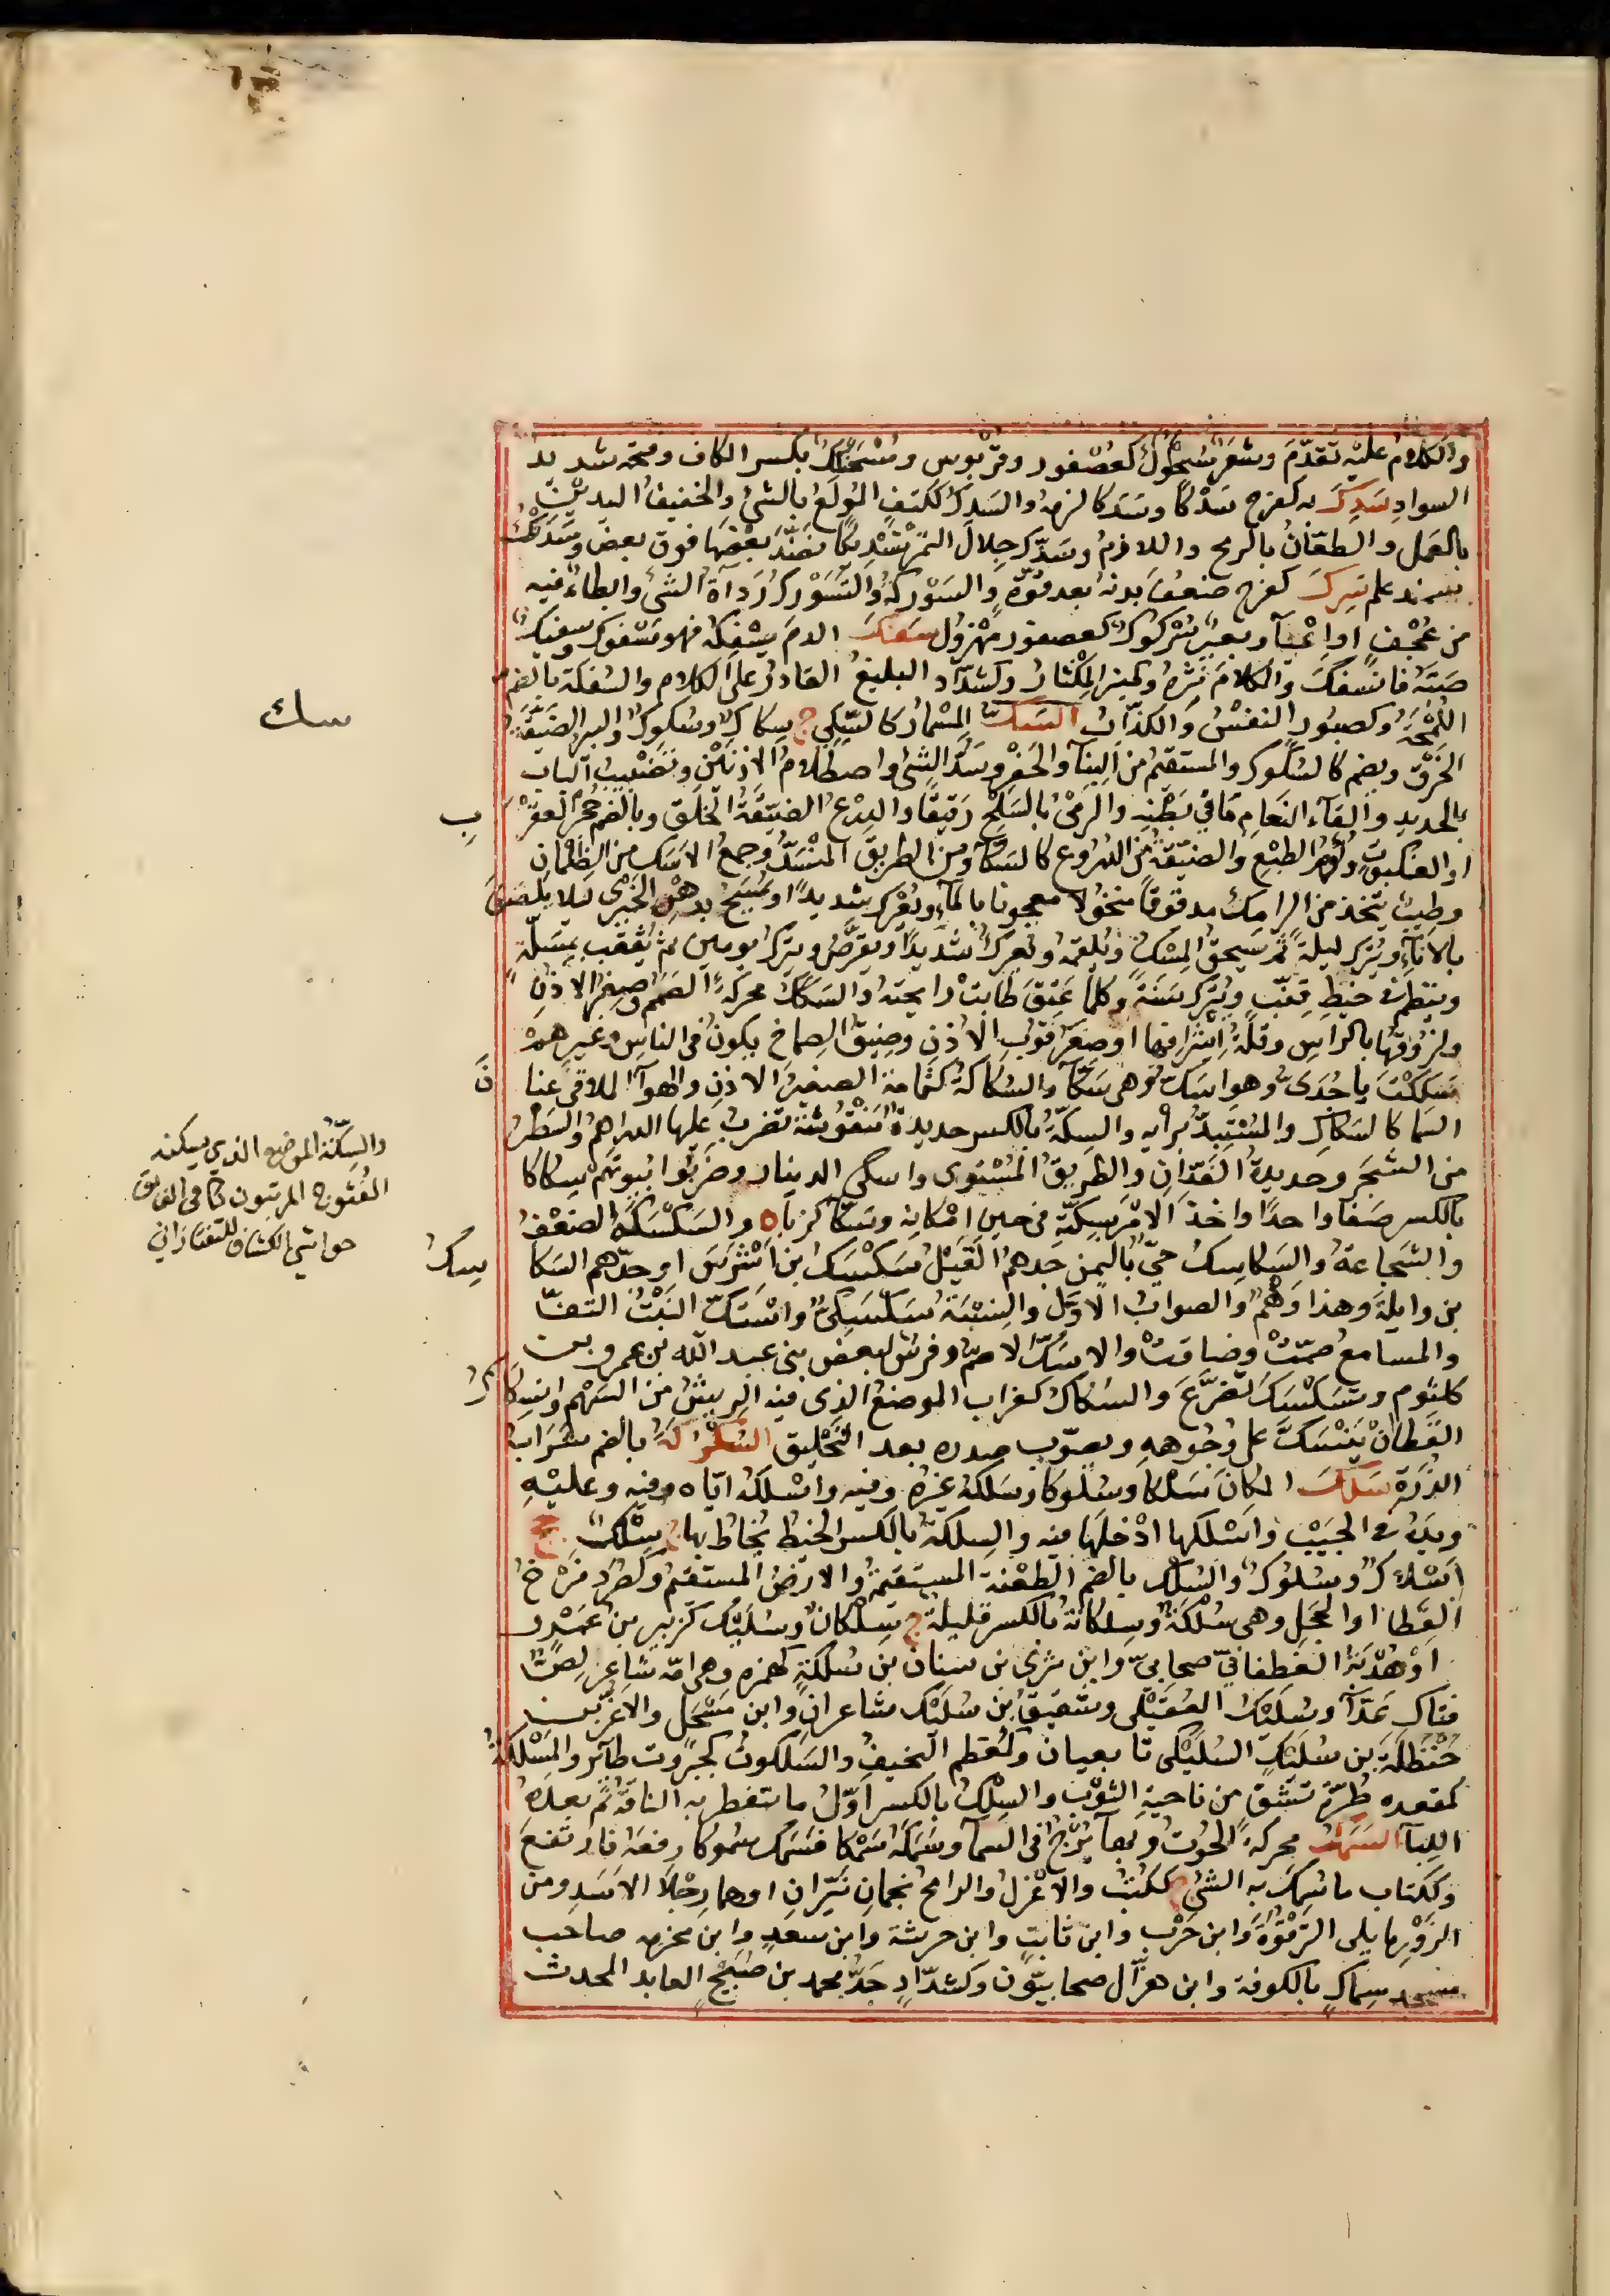 والكلام عليه تقدّم وشَعَرٌ سُحْكُوكٌ كعصفور وقربوس ومُسْحَنْكِكٌ بكسر الكاف وفتحه شديد
السوادِ سَدِكَ به كفرح سَدْكًا وسَدَكا لزمه والسَدِكُ ككتفٍ المولَعُ بالشئ والخفيفُ اليدين
بالعمل والطعّانُ بالرمح واللازمُ وسَدّكَ جِلالَ التمر تَسْدِيكًا نَضَّدَ بعضَها فوق بعض وسَدَكُ
علم سَرِكَ كفرح ضعف بدنه بعد قوّةٍ والسَوْرَكةُ والتَسَوْرُكُ رَداآة الشئ وابطاءٌ فيه
من عُجْفٍ او اعْيآءٍ وبعيرٌ سُرْكُوكٌ كعصفور مهزول سَفَكَ الدمَ يَسْفِكُه فهو مَسْفُوكٌ وسفيكٌ
صَبَّهُ فانسفك والكلامَ نَثَرَهُ وكمنبر المِكْثارُ وكشدّاد البليغُ القادرُ على الكلام والسُفكة بالضم
اللُمْجَةُ وكصبور النفسُ والكذّابُ السَكُّ المِسْمارُ كالسَّكِّي ج سِكاكٌ وسُكوكٌ والبير الضيّقةُ
الخَرْقِ ويضم كالسَكوكِ والمستقيمُ من البِنآءِ والحَفْرِ وسَدُّ الشئِ واصطِلامُ الاذنَيْنِ وتَضْبِيبُ الباب
بالحديدِ والقآءُ النعامِ ما في بَطْنِه والرمىُ بالسَلْحِ رَقيقًا والدِرْعُ الضيّقةُ الحَلَقِ وبالضم جُحْرُ العقْرَ
بِ
او العنكبوت ولُؤْمُ الطَبْعِ والضيّقةُ من الدروع كالسَكّآءِ ومن الطريق المُنْسَدُّ وجمعُ الاَسَكِّ من الظِلْمان
وطِيبٌ يُتّخذ من الرامِكِ مدقوقاً منخولا معجونا بالمآءِ ويُعْرَكُ شديدًا ويُمْسَحُ بدهنِ الخِيْرِى ليلا يلصَقَ
بالاناءِ ويُتركُ ليلةً ثم يُسحقُ المِسْكُ ويُلقمه ويُعركُ شديدًا ويقرّصُ ويتركُ يومين ثم يُثقب بمِسَلّةٍ
ويُنظم فى خيطِ قِنّبٍ ويُتركُ سَنةً وكلما عَتُقَ طابتْ رايحته والسَكَكُ محركةً الصَمَمُ وصِغَرُ الاذنِ
ولزوقُها بالراسِ وقلّةُ اشرافِها او صِغَرُ قوب الاذنِ وضِيقُ الصِماخِ يكونُ في الناسِ وغيرِهمْ
سَكِكْتَ يا جُدَىُّ وهو اسَكُّ وهى سَكّآءُ والسُكاكةُ كثُمامة الصغيرُ الاذنِ والهوآءُ الملاقى عنا
نَ
السما كالسُكاكِ والمستبِدُّ برايه والسِكّةُ بالكسر حديدةٌ منقوشةٌ تضرب عليها الدراهمُ والسَطْرُ
من الشجرِ وحديدةُ الفَدّانِ والطريقُ المُسْتوى واسكى الدينار وضَرَبُوا بيوتَهم سِكاكا
بالكسر صَفًّا واحدًا واخذَ الامرَ بِسِكّتِه في حينِ امْكانه وسَكّآء كزبّاء ة والسَكْسَكةُ الضعفُ
والشجاعةُ والسَكاسِكُ حىٌّ باليمن جدهم القَيْلُ سَكْسَكُ بن اَشْرَسَ او جدّهم السَكا
سِكُ
بن وايلةَ وهذا وَهْمٌ والصوابُ الاوّلُ والنِسْبَةُ سَكْسَكِىٌّ واسْتَكَّ النَبْتُ التفّ
والمسامعُ صَمّتْ وضاقتْ والاسَكُّ الاصمّ وفرسٌ لبعض بنى عبد الله بن عمرو بن
كلثوم وتَسَكْسَكَ تضرَّعَ والسُكاكُ كغراب الموضعُ الذى فيه الريشُ من السَهْمِ وانسِكا
كُ
القَطا انْ يَنْسَكَّ على وُجُوههِ ويصوّب صدره بعد التَحْليق السُكْرُكَةُ بالضم شَرَابُ
الذُرَةِ سَلَكَ المكانَ سَلْكا وسُلوكا وسَلَكهُ غيرُه وفيه واسْلَكهُ ايّاه وفيه وعليْهِ
ويدَهُ فى الجَيْبِ واسْلَكها ادْخلَها فيه والسِلكةُ بالكسر الخيطُ يُخاطُ بها ج سِلْكٌ جج
اَسْلاكٌ وسُلوكٌ والسُلْكى بالضم الطعْنة المستقيمةُ والامرُ المستقيمُ وكصُرَدٍ فَرْخُ
القَطا او الحَجَلِ وهى سُلَكَةٌ وسِلْكانةٌ بالكسر قليلةٌ ج سِلْكانٌ وسُلَيْكٌ كزبير بن عَمْرٍو
اوْ هُدْبَةَ الغَطَفانِيُّ صحابىٌّ وابن يثربى بن سِنان بن سُلَكةٍ كهمزه وهى امّه شاعر لِصٌّ
فتّاك عَدّآءٌ وسُلَيْكٌ العُقَيْلى وشقيقُ بن سُلَيْك شاعران وابن مِسْحَل والاغرّ بن
حَنْظَلةَ بن سُلَيْكٍ السُلَيْكى تابعيان وكمُعَظّم النحيفُ والسَلَكوتُ كجَبَروت طآئر والمَسْلَكةُ
كمقعده طُرّةٌ تشقّ من ناحيةِ الثوبِ والسِلْكُ بالكسر اوّلُ ما تتفطر به الناقةُ ثم بعدهُ
اللِبَأُ السَمَكُ محركةً الحُوتُ وبهآءٍ بُرْجٌ فى السمآء وسَمَكَهُ سَمْكا فسَمَك سُموكا رفعَه فارتفعَ
وككتاب ما سُمِكَ به الشئ ج ككُتُبٍ والاَعْزلُ والرامحُ نجمانِ نَيِّرانِ او هما رِجْلا الاَسَدِ ومن
الزَوْرِ ما يلى التَرْقُوَةَ وابن حَرْب وابن ثابتٍ وابن خرشة وابن سعدٍ وابن مخرمه صاحب
مسجد سِماكٍ بالكوفة وابن هزّال صحابيّون وكشدّادٍ جَدُّ محمد بن صَبِيْحٍ العابد المحدث
سك
والسِكّةُ الموضع الذي يسكنه
الفُيُوج المرتبون كما في الفايق
حواشي الكشاف للتفتازاني